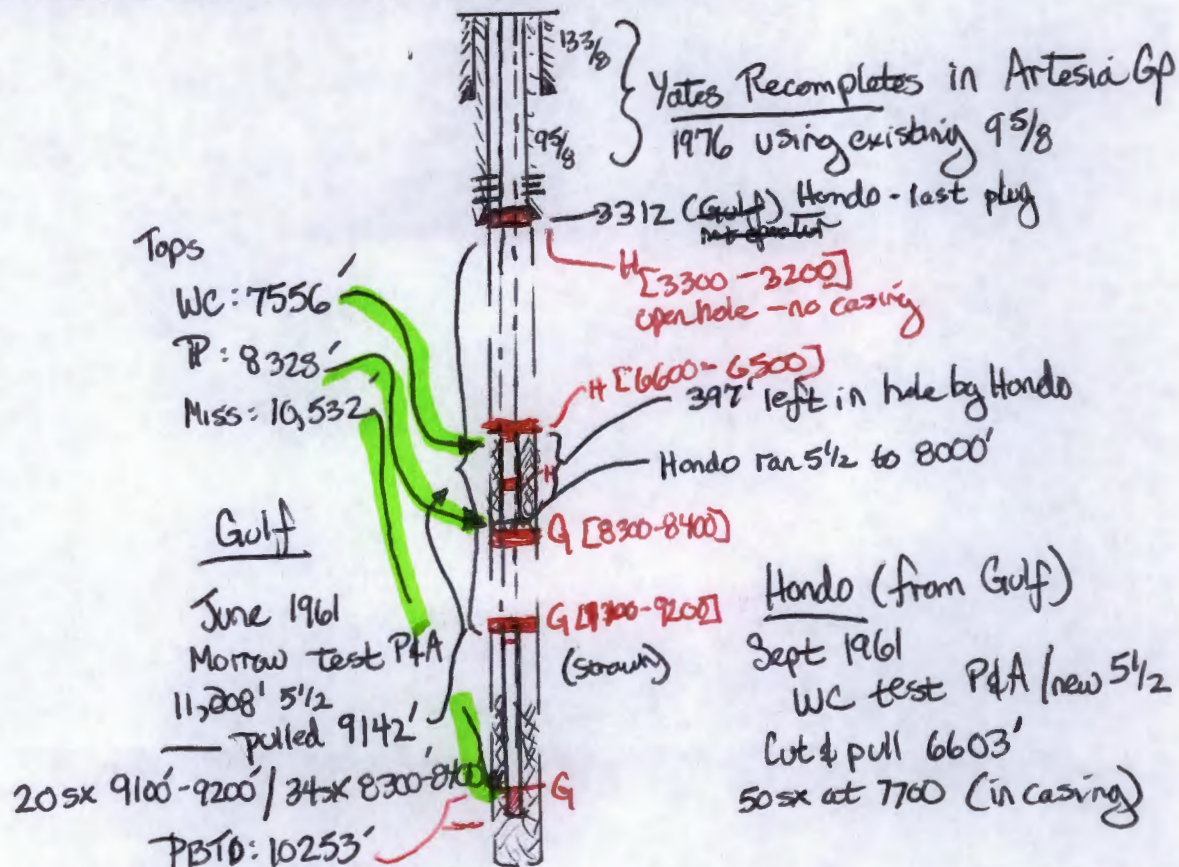 13 3/8
Yates Recompletes in Artesia Gp
1976 using existing 9 5/8
9 5/8
3312 (Gulf) Hondo - last plug
H [3300 - 3200]
open hole - no casing
Tops
WC: 7556'
IP: 8328'
Miss: 10,532
H [6600 - 6500]
397' left in hole by Hondo
H
Hondo ran 5 1/2 to 8000'
G [8300-8400]
G [9300-9200]
(strawn)
Gulf
June 1961
Morrow test P&A
11,208' 5 1/2
— pulled 9142'
20 sx 9100'-9200' / 34 sx 8300-8400'
G
PBTD: 10253'
Hondo (from Gulf)
Sept 1961
WC test P&A / new 5 1/2
Cut & pull 6603'
50 sx at 7700 (in casing)